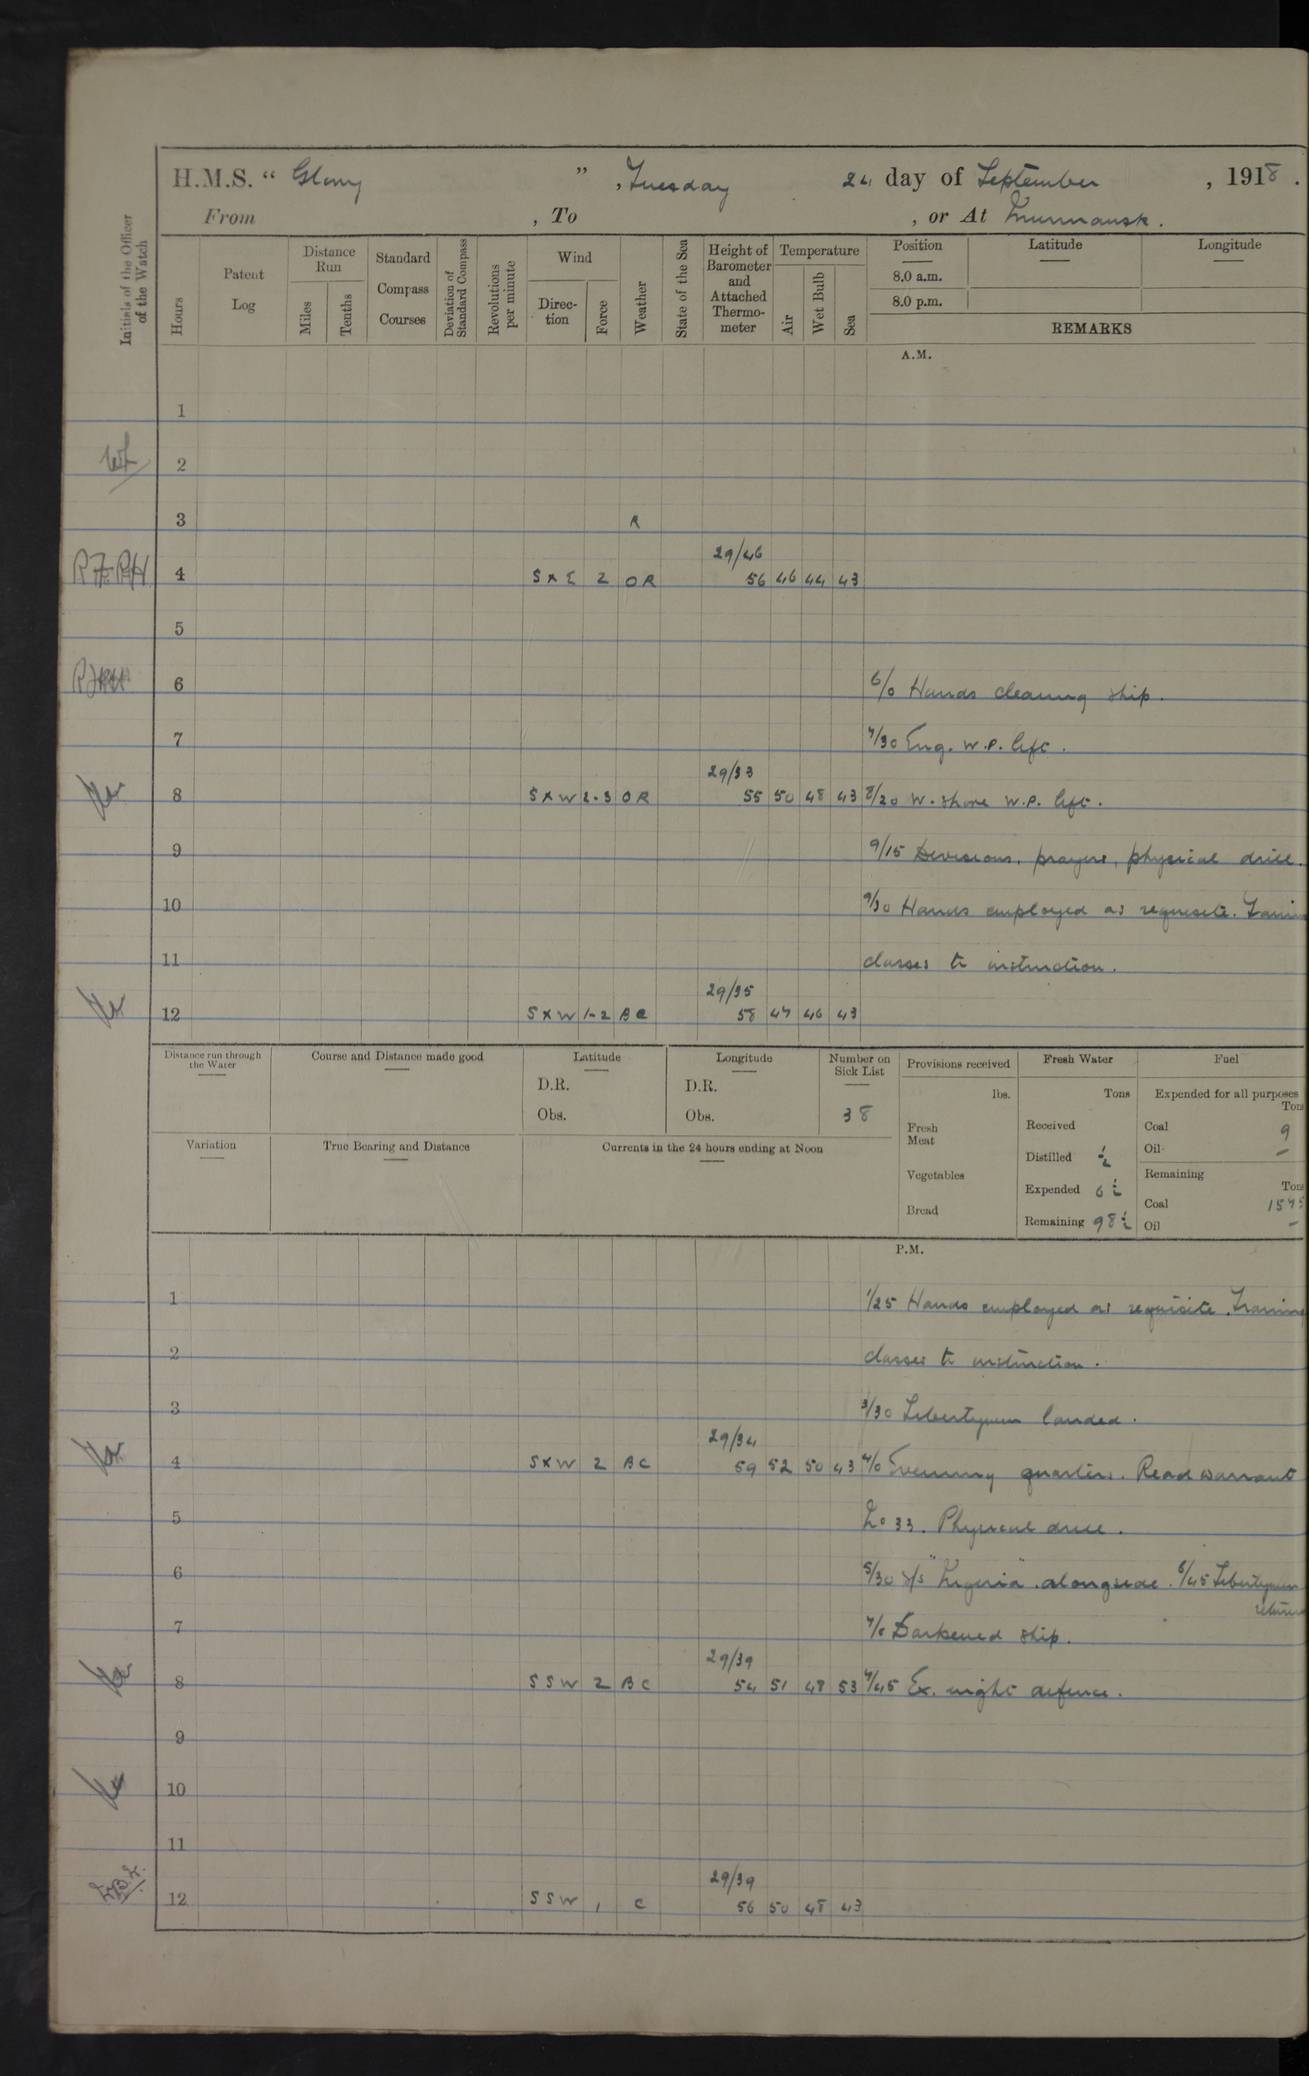 H.M.S. “ Glory ” , Tuesday 24 day of September , 1918 .
From , To , or At Murmansk .
Initials of the Officer of the Watch
Hours
Patent Log
Distance Run
Miles
Tenths
Standard Compass Courses
Deviation of Standard Compass
Revolutions per minute
Wind
Direc-tion
Force
Weather
State of the Sea
Height of Barometer and Attached Thermo-meter
Temperature
Air
Wet Bulb
Sea
Position
8.0 a.m.
8.0 p.m.
Latitude
Longitude
REMARKS
A.M.
1
2
3 R
29/46
4 S x E 2 O R 56 46 44 43
5
6 6/0 Hands cleaning ship.
7 7/30 Eng. W.P. left.
29/33
8 S x W 2-3 O R 55 50 48 43 8/20 W. shore W.P. left.
9 9/15 Divisions, prayers, physical drill.
10 9/30 Hands employed as requisite.
11 classes to instruction.
29/35
12 S x W 1-2 B C 58 47 46 43
Distance run through the Water
Course and Distance made good
Latitude
D.R.
Obs.
Longitude
D.R.
Obs.
Number on Sick List
38
Variation
True Bearing and Distance
Currents in the 24 hours ending at Noon
Provisions received
lbs.
Fresh Meat
Vegetables
Bread
Fresh Water
Tons
Received
Distilled ½
Expended 6 ½
Remaining 98 ½
Fuel
Expended for all purposes
Tons
Coal 9
Oil —
Remaining
Tons
Coal
Oil —
P.M.
1 1/25 Hands employed as requisite. Training
2 classes to instruction.
3 3/30 Libertymen landed.
29/34
4 S x W 2 B C 59 52 50 43 4/0 Evening quarters. Read warrant
5 No 33. Physical drill.
6 5/30 S/S "Nigeria" alongside. 6/45 Libertymen
7 7/0 Darkened ship.
29/39
8 S S W 2 B C 54 51 48 53 7/45 Ex. night defence.
9
10
11
29/39
12 S S W 1 C 56 50 48 43